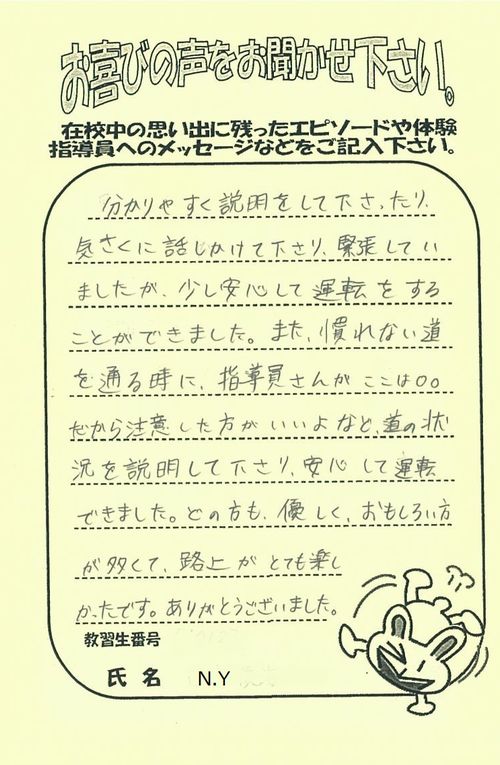 お喜びの声をお聞かせ下さい。
在校中の思い出に残ったエピソードや体験
指導員へのメッセージなどをご記入下さい。
分かりやすく説明をして下さったり、
気さくに話しかけて下さり、緊張してい
ましたが、少し安心して運転をする
ことができました。また、慣れない道
を通る時に、指導員さんがここは○○
だから注意した方がいいよなど、道の状
況を説明して下さり、安心して運転
できました。どの方も、優しく、おもしろい方
が多くて、路上がとても楽し
かったです。ありがとうございました。
教習生番号
氏名 N.Y